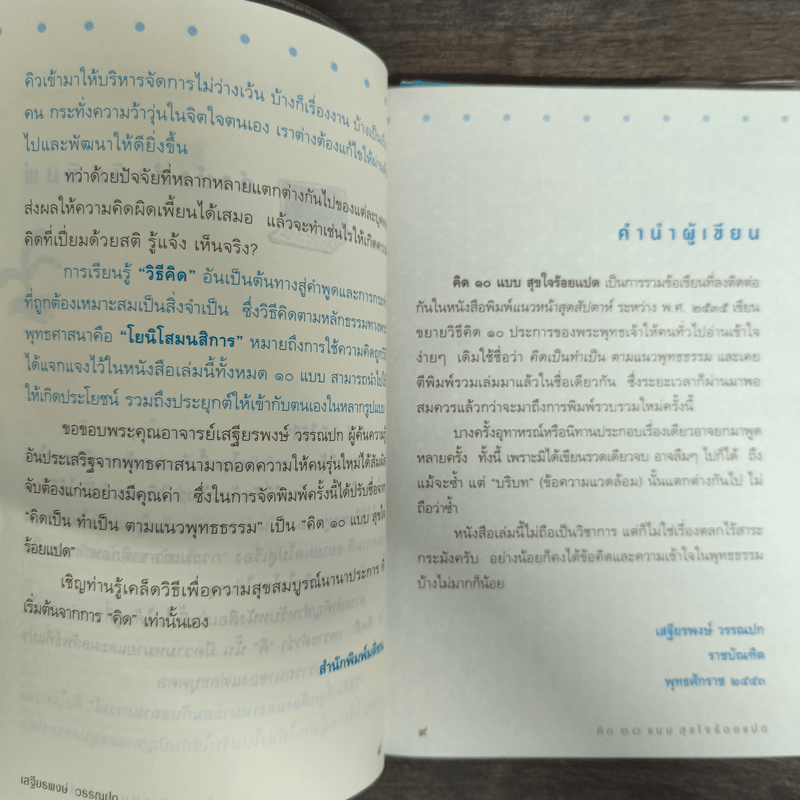 คิวเข้ามาให้บริหารจัดการไม่ว่างเว้น บ้างก็เรื่องงาน บ้างเป็น
คน กระทั่งความว้าวุ่นในจิตใจตนเอง เราต่างต้องแก้ไขให้
ไปและพัฒนาให้ดียิ่งขึ้น
ทว่าด้วยปัจจัยที่หลากหลายแตกต่างกันไปของแต่ละ
ส่งผลให้ความคิดผิดเพี้ยนได้เสมอ แล้วจะทำเช่นไรให้เกิด
คิดที่เปี่ยมด้วยสติ รู้แจ้ง เห็นจริง?
การเรียนรู้ “วิธีคิด” อันเป็นต้นทางสู่คำพูดและการ
ที่ถูกต้องเหมาะสมเป็นสิ่งจำเป็น ซึ่งวิธีคิดตามหลักธรรมทาง
พุทธศาสนาคือ “โยนิโสมนสิการ” หมายถึงการใช้ความคิด
ได้แจกแจงไว้ในหนังสือเล่มนี้ทั้งหมด ๑๐ แบบ สามารถนำไป
ให้เกิดประโยชน์ รวมถึงประยุกต์ให้เข้ากับตนเองในหลากรูปแบบ
ขอขอบพระคุณอาจารย์เสฐียรพงษ์ วรรณปก ผู้ค้นความ
อันประเสริฐจากพุทธศาสนามาถอดความให้คนรุ่นใหม่ได้
จับต้องแก่นอย่างมีคุณค่า ซึ่งในการจัดพิมพ์ครั้งนี้ได้ปรับชื่อจาก
“คิดเป็น ทำเป็น ตามแนวพุทธธรรม” เป็น “คิด ๑๐ แบบ สุขใจ
ร้อยแปด”
เชิญท่านรู้เคล็ดวิธีเพื่อความสุขสมบูรณ์นานาประการ ที่
เริ่มต้นจากการ “คิด” เท่านั้นเอง
สำนักพิมพ์มติชน
เสฐียรพงษ์ วรรณปก
คำนำผู้เขียน
คิด ๑๐ แบบ สุขใจร้อยแปด เป็นการรวมข้อเขียนที่ลงติดต่อ
กันในหนังสือพิมพ์แนวหน้าสุดสัปดาห์ ระหว่าง พ.ศ. ๒๕๓๕ เขียน
ขยายวิธีคิด ๑๐ ประการของพระพุทธเจ้าให้คนทั่วไปอ่านเข้าใจ
ง่ายๆ เดิมใช้ชื่อว่า คิดเป็นทำเป็น ตามแนวพุทธธรรม และเคย
ตีพิมพ์รวมเล่มมาแล้วในชื่อเดียวกัน ซึ่งระยะเวลาก็ผ่านมาพอ
สมควรแล้วกว่าจะมาถึงการพิมพ์รวบรวมใหม่ครั้งนี้
บางครั้งอุทาหรณ์หรือนิทานประกอบเรื่องเดียวอาจยกมาพูด
หลายครั้ง ทั้งนี้ เพราะมิได้เขียนรวดเดียวจบ อาจลืมๆ ไปก็ได้ ถึง
แม้จะซ้ำ แต่ “บริบท” (ข้อความแวดล้อม) นั้นแตกต่างกันไป ไม่
ถือว่าซ้ำ
หนังสือเล่มนี้ไม่ถือเป็นวิชาการ แต่ก็ไม่ใช่เรื่องตลกไร้สาระ
กระมังครับ อย่างน้อยก็คงได้ข้อคิดและความเข้าใจในพุทธธรรม
บ้างไม่มากก็น้อย
เสฐียรพงษ์ วรรณปก
ราชบัณฑิต
พุทธศักราช ๒๕๕๓
๙
คิด ๑๐ แบบ สุขใจร้อยแปด